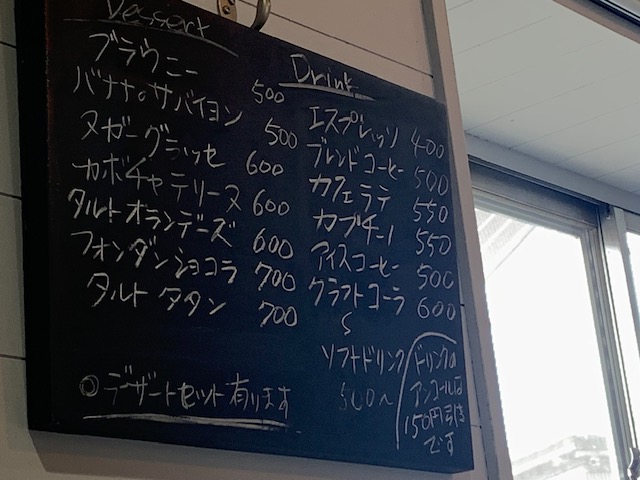 Dessert
ブラウニー 500
バナナ。サバイヨン 500
ヌガーグラッセ 600
カボチャテリーヌ 600
タルトオランデーズ 600
フォンダンショコラ 700
タルトタタン 700
◎デザートセット有ります
Drink
エスプレッソ 400
ブレンドコーヒー 500
カフェラテ 550
カプチーノ 550
アイスコーヒー 500
クラフトコーラ 600
ソフトドリンク
500〜
ドリンクの
アンコールは
150円引き
です